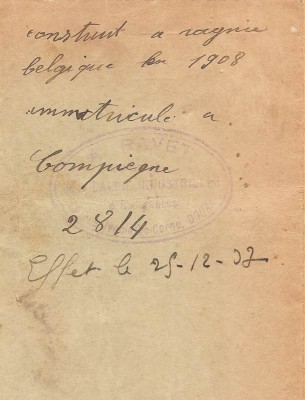 construit a ragnie
belgique en 1908
immatricule a
Compiegne
2814
Effet le 25-12-37